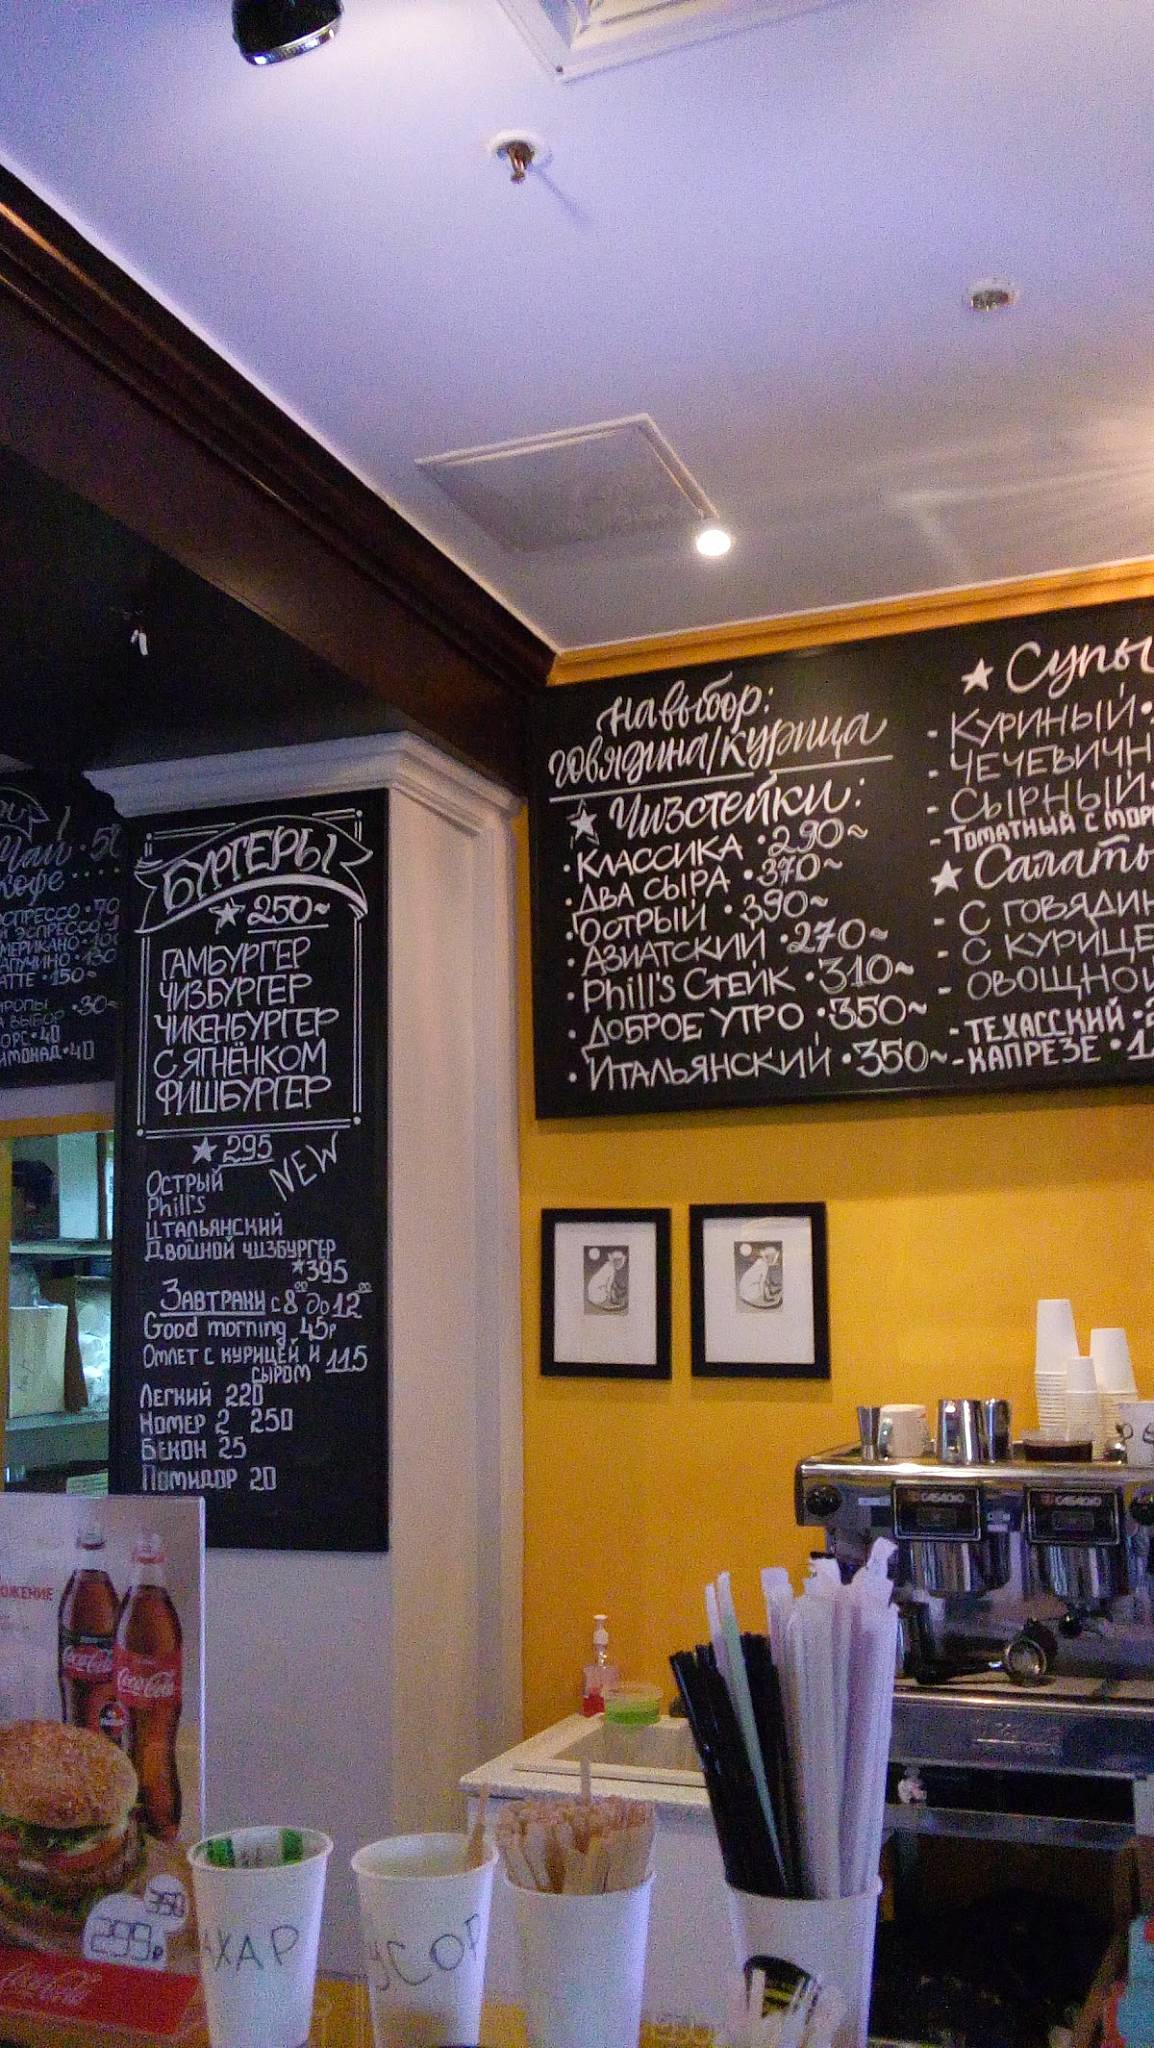 Чай • 50
кофе
ЭСПРЕССО • 70
ЭСПРЕССО
АМЕРИКАНО
КАПУЧИНО • 130
ЛАТТЕ • 150~
СИРОПЫ
НА ВЫБОР • 30~
МОРС • 40
ЛИМОНАД • 40
БУРГЕРЫ
250~
ГАМБУРГЕР
ЧИЗБУРГЕР
ЧИКЕНБУРГЕР
С ЯГНЁНКОМ
ФИШБУРГЕР
295
NEW
ОСТРЫЙ
Phill's
ИТАЛЬЯНСКИЙ
ДВОЙНОЙ ЧИЗБУРГЕР
*395
ЗАВТРАКИ с 8⁰⁰ до 12⁰⁰
Good morning 45р
ОМЛЕТ С КУРИЦЕЙ И 115
СЫРОМ
ЛЕГКИЙ 220
НОМЕР 2 250
БЕКОН 25
ПОМИДОР 20
На выбор:
говядина/курица
Чизстейки:
• КЛАССИКА • 290~
• ДВА СЫРА • 370~
• ОСТРЫЙ • 390~
• АЗИАТСКИЙ • 270~
• Phill's СТЕЙК • 310~
• ДОБРОЕ УТРО • 350~
• ИТАЛЬЯНСКИЙ • 350~
Супы
- КУРИНЫЙ •
- ЧЕЧЕВИЧН
- СЫРНЫЙ •
- ТОМАТНЫЙ С МОР
Салаты
- С ГОВЯДИН
- С КУРИЦЕ
- ОВОЩНОЙ
- ТЕХАССКИЙ •
- КАПРЕЗЕ •
CASADIO
CASADIO
ОЖЕНИЕ
Coca-Cola
Coca-Cola
350
299₽
Coca-Cola
АХАР
УСОР